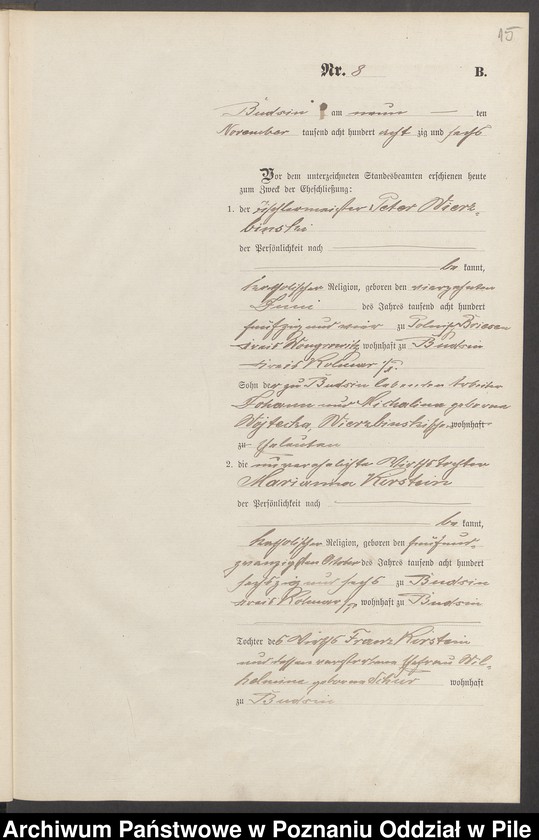 15
Nr. 8 B.
Budsin am neun ten
November tausend acht hundert acht zig und sechs
Vor dem unterzeichneten Standesbeamten erschienen heute
zum Zweck der Eheschließung:
1. der Tischlermeister Peter Wierz-
binski
der Persönlichkeit nach
be kannt,
katholischer Religion, geboren den vierzehnten
Juni des Jahres tausend acht hundert
fünfzig und vier zu Polnisch Briesen
Kreis Wongrowitz, wohnhaft zu Budsin
Kreis Kolmar i/P.
Sohn der zu Budsin lebenden Arbeiter
Johann und Michalina geborne
Wojtecka, Wierzbinski'schen wohnhaft
zu Eheleuten
2. die unverehelichte Wirthstochter
Marianna Kirstein
der Persönlichkeit nach
be kannt,
katholischer Religion, geboren den fünfund-
zwanzigsten Oktober des Jahres tausend acht hundert
sechszig und sechs zu Budsin
Kreis Kolmar i/P. wohnhaft zu Budsin
Tochter des Wirths Franz Kirstein
und dessen verstorbene Ehefrau Wil-
helmine geborne Schur wohnhaft
zu Budsin
Archiwum Państwowe w Poznaniu Oddział w Pile